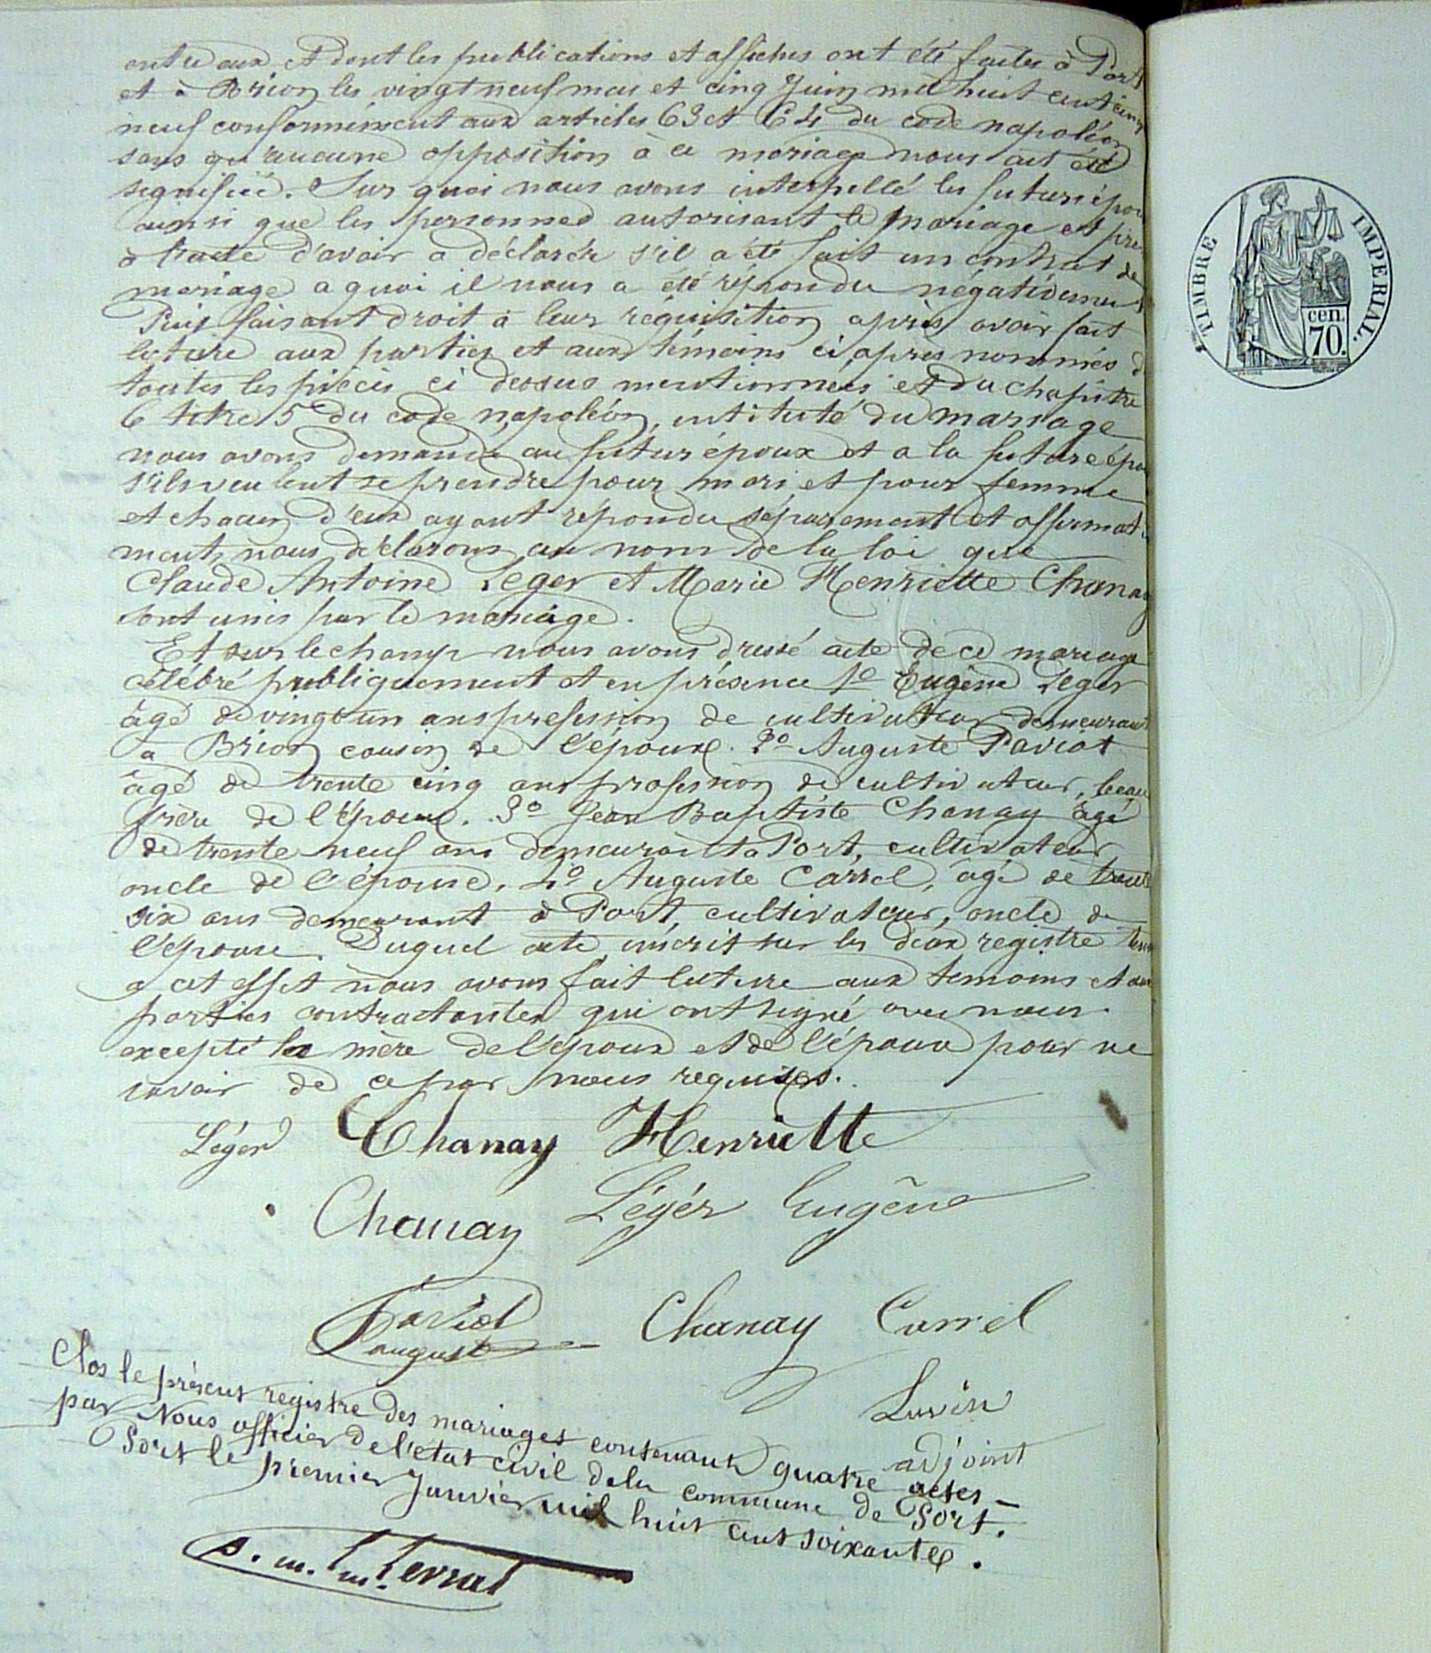 entre eux et dont les publications et affiches ont été faites à Port
et à Brion les vingt neuf mai et cinq Juin mil huit cent cinq
neuf conformément aux articles 63 et 64 du code napoléon
sans qu'aucune opposition à ce mariage nous ait été
signifiée. Sur quoi nous avons interpellé les futurs épou
ainsi que les personnes autorisant le mariage et pre
à l'acte d'avoir a déclarer s'il a été fait un contrat de
mariage a quoi il nous a été répondu négativement
Puis faisant droit à leur réquisition après avoir fait
lecture aux parties et aux témoins ci après nommés d
toutes les pièces ci dessus mentionnées et du chapitre
6 titre 5 du code napoléon, intitulé du mariage
nous avons demandé au futur époux et a la future épou
s'ils veulent se prendre pour mari et pour femme
et chacun d'eux ayant répondu séparement et affirmati
ment nous déclarons au nom de la loi que
Claude Antoine Leger et Marie Henriette Chanay
sont unis par le mariage.
Et sur le champ nous avons dressé acte de ce mariage
célébré publiquement et en présence 1º Eugène Léger
âgé de vingt un ans profession de cultivateur demeurant
à Brion cousin de l'époux. 2º Auguste Paviot
âgé de trente cinq ans profession de cultivateur, beau
frère de l'époux. 3º Jean Baptiste Chanay âgé
de trente neuf ans demeurant à Port, cultivateur
oncle de l'épouse. 4º Auguste Carrel, âgé de trente
six ans demeurant à Port, cultivateur, oncle de
l'épouse. Duquel acte, inscrit sur les deux registre tenu
a cet effet nous avons fait lecture aux temoins et aux
parties contractantes qui ont signé avec nous.
excepté la mère de l'époux et de l'épouse pour ne
savoir de ce par nous requises.
Léger Chanay Henriette
Chanay Légér Eugêne
Paviot
auguste
Chanay Carrel
adjoint
Clos le présent registre des mariages contenant quatre actes
par Nous officier de l'état civil de la commune de Port.
Port le premier Janvier mil huit cent soixante.
TIMBRE IMPERIAL.
cen.
70.